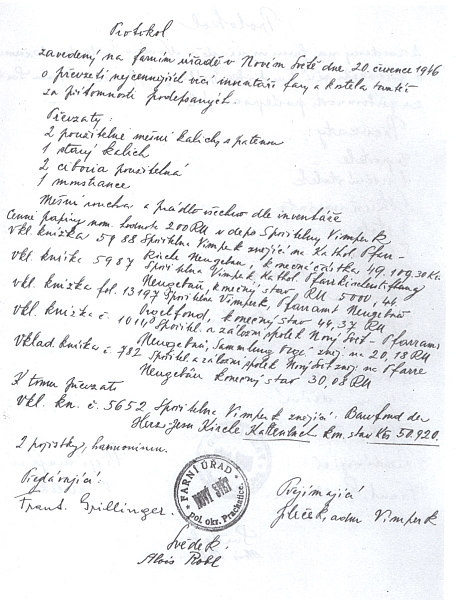 Protokol
zavedený na farním úřadě v Novém Světě dne 20. července 1946
o převzetí nejcennějších věcí inventáře fary a kostela tamtéž
za přítomnosti podepsaných.
Převzaty:
2 použitelné mešní kalichy s patenou
1 starý kalich
2 ciboria použitelná
1 monstrance
Mešní roucha a prádlo všechno dle inventáře
Cenné papíry nom. hodnota 200 RM v depo Spořitelny Vimperk
vkl. knížka 5988 Spořitelna Vimperk znějící na Kathol. Pfarr-
Kirche Neugebäu, konečná částka 49.109.30 Kčs
vkl. knížka 5987 Spořitelna Vimperk Kathol. Pfarrkirchenstiftung
Neugebäu, konečný stav RM 5000,44
vkl. knížka fol. 13197 Spořitelna Vimperk, Pfarramt Neugebäu
Orgelfond, konečný stav 44,37 RM
vkl. knížka č. Spořitel. a záložní spolek Nový Svět - Pfarramt
Neugebäu, Sammlung znej. na 20,18 RM
Vklad. knížka č. 782 Spořitel. a záložní spolek Nový Svět znej. na Pfarre
Neugebäu konečný stav 30,08 RM
K tomu převzato
vkl. kn. č. 5652 Spořitelna Vimperk znějící: Baufond der
Herz Jesu Kirche Kaltenbach kon. stav Kčs 50.920.
2 pojistky, harmonium.
Předávající:
Přejímající
Frant. Spillinger.
Jileček, adm Vimperk
FARNÍ ÚŘAD
NOVÝ SVĚT
pol. okr. Prachatice.
Svědek:
Alois Robl